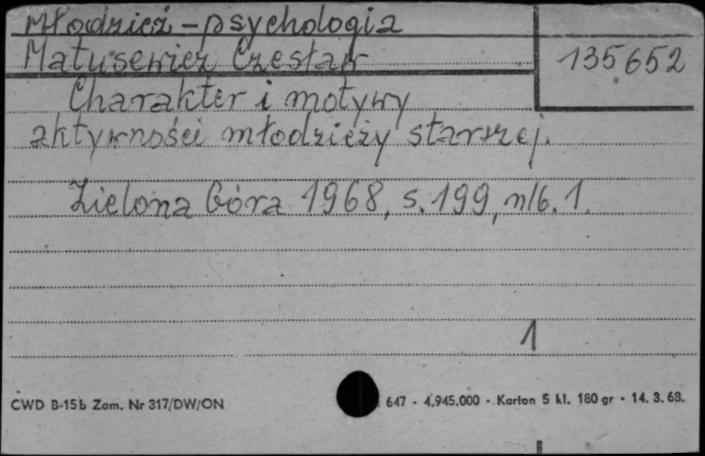 Młodzież - psychologia
Matusewicz Czesław
135652
Charakter i motywy
aktywności młodzieży starszej.
Zielona Góra 1968, s. 199, nlb. 1.
1
CWD B-15b Zam. Nr 317/DW/ON
647 - 4.945.000 - Karton 5 kl. 180 gr - 14. 3. 68.